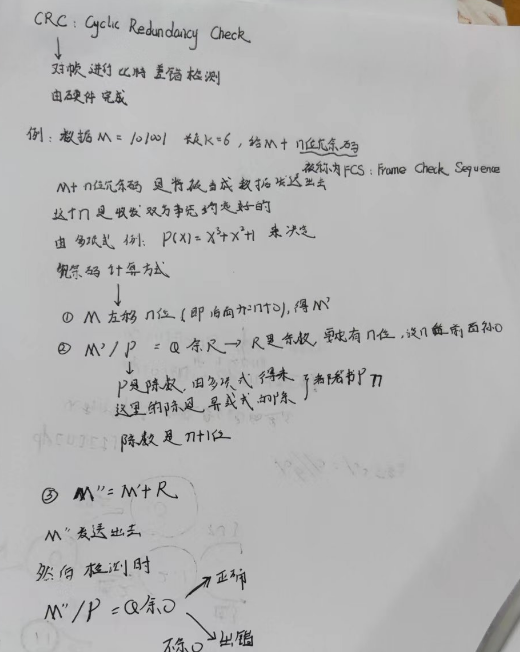 CRC: Cyclic Redundancy Check
↓
对帧进行比特差错检测
由硬件完成
例: 数据M = 101001 长K=6, 给M + n位冗余码
被称为FCS: Frame Check Sequence
M + n位冗余码 是将被当成数据发送出去
这个n是收发双方事先约定好的
由多项式 例: P(X) = X³+X²+1 来决定
冗余码计算方式
↓
① M 左移n位 (即向后加n个0), 得M'
② M'/P = Q余R → R是余数, 要求有n位, 没n位前面补0
↓
P是除数, 由多项式得来
这里的除是, 异或式的除
除数是n+1位
③ M'' = M' + R
M''发送出去
然后检测时
M''/P = Q余0 → 正确
不余0 出错